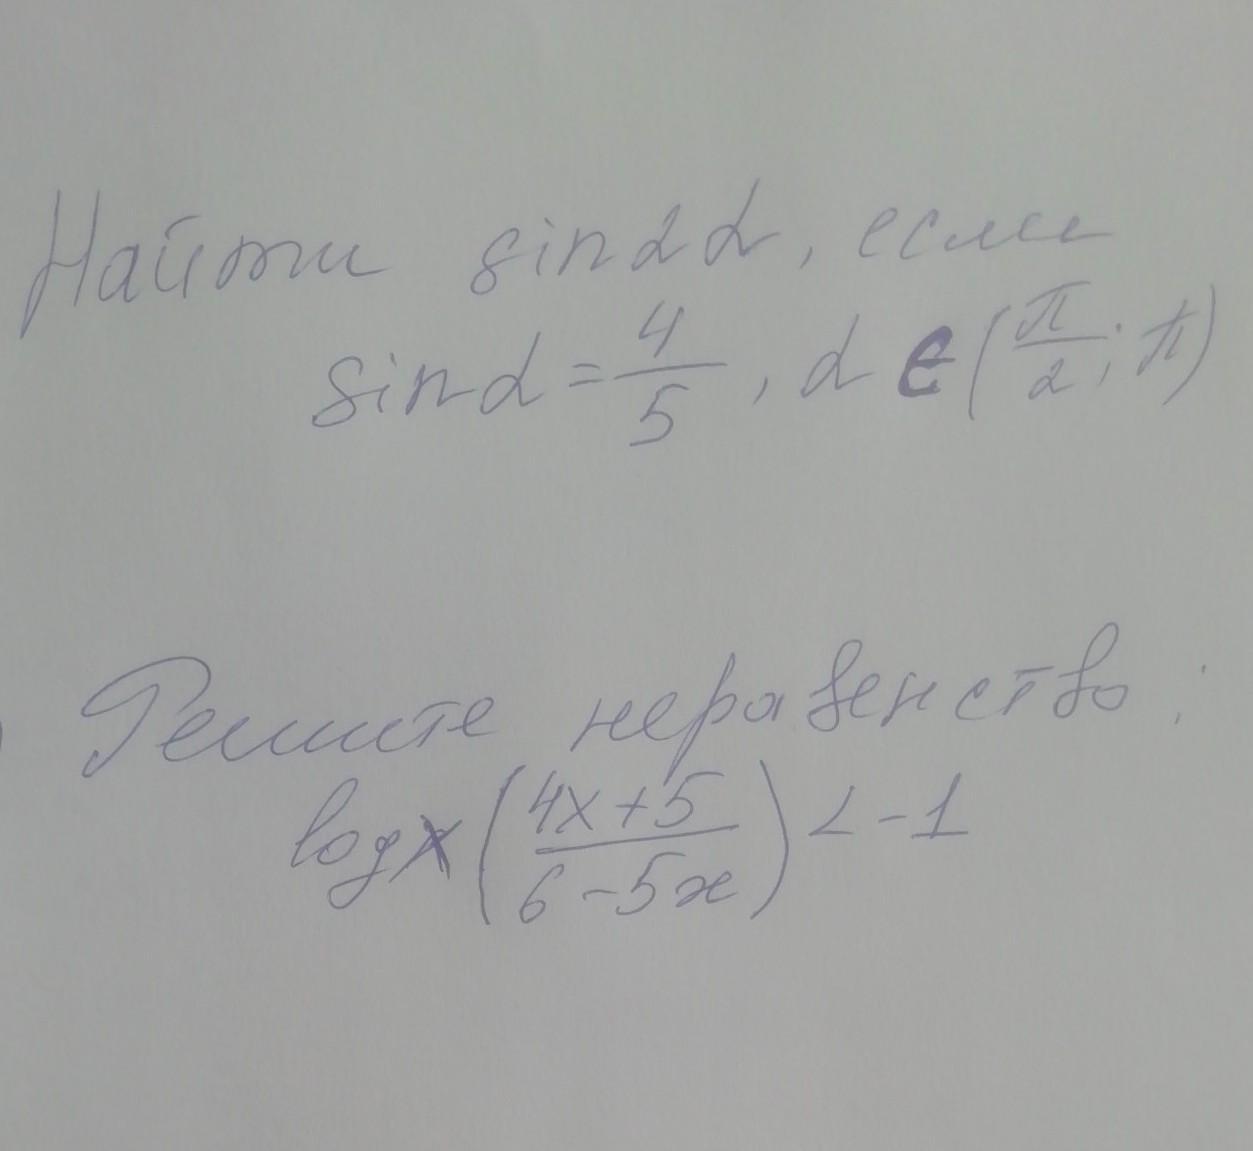 Найти sin2α, если
sinα = 4/5, α ∈ (π/2; π)
Решите неравенство:
logₓ((4x+5)/(6-5x)) < -1